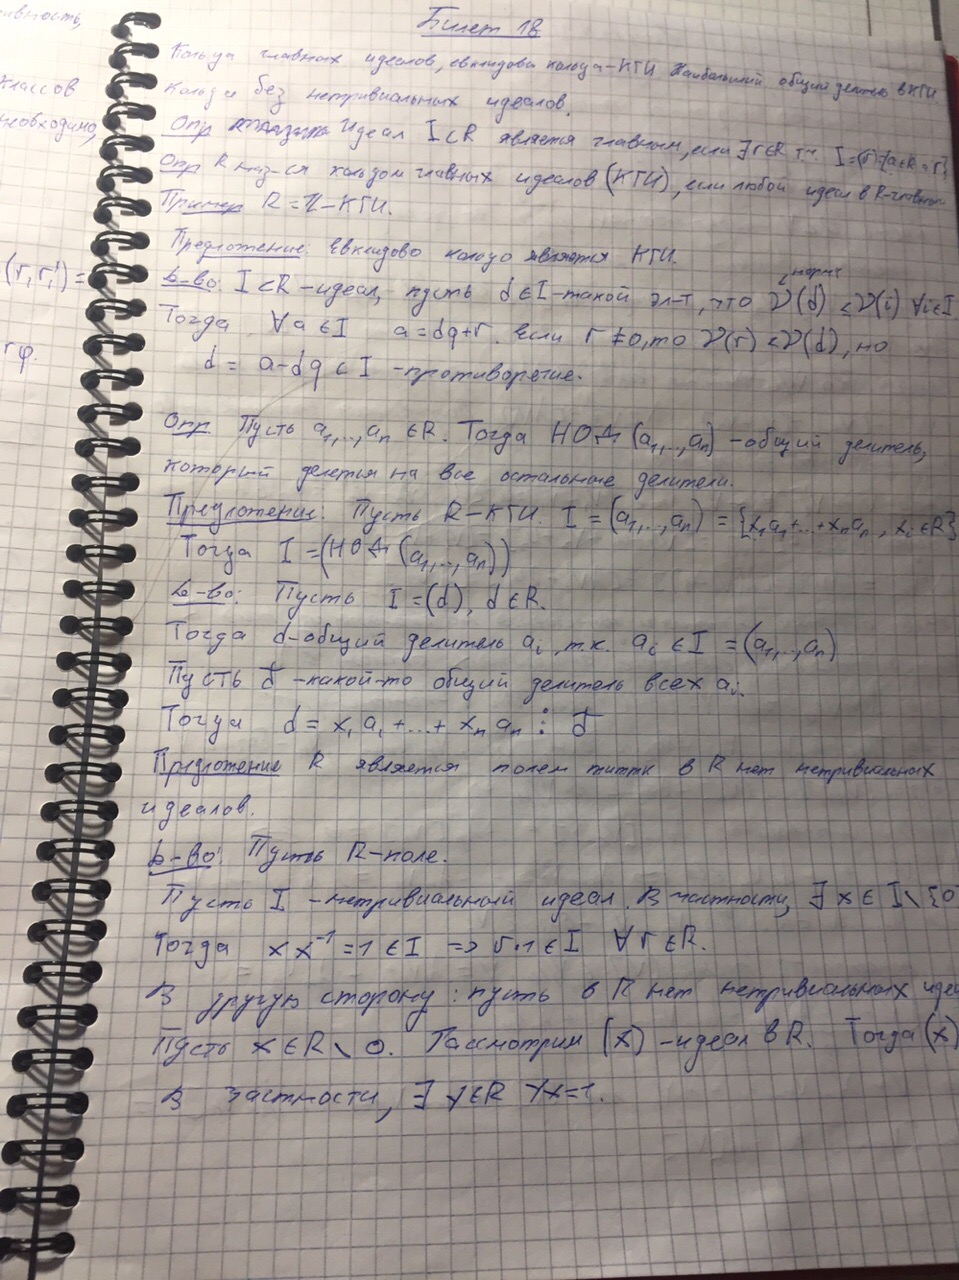 Билет 18
Кольца главных идеалов, евклидовы кольца - КГИ. Наибольший общий делитель в КГИ.
Кольца без нетривиальных идеалов.
Опр Идеал I⊂R является главным, если ∃r∈R т.ч. I=(r)
Опр R наз-ся кольцом главных идеалов (КГИ), если любой идеал в R-главный
Пример R=ℤ-КГИ.
Предложение: Евклидово кольцо является КГИ.
норма
(r, r,') =
Д-во: I⊂R -идеал, пусть d∈I-такой эл-т, что 𝒱(d) ≤ 𝒱(i) ∀i∈I
Тогда ∀a∈I a=dq+r. Если r≠0, то 𝒱(r) < 𝒱(d), но
гф.
d = a-dq ∈ I -противоречие.
Опр. Пусть a₁,..,aₙ ∈R. Тогда НОД (a₁,..,aₙ) -общий делитель,
который делется на все остальные делители.
Предложение: Пусть R-КГИ. I = (a₁,..,aₙ) = {x₁a₁+...+xₙaₙ, xᵢ∈R}
Тогда I=(НОД(a₁,..,aₙ))
Д-во: Пусть I=(d), d∈R.
Тогда d-общий делитель aᵢ, т.к. aᵢ∈I=(a₁,..,aₙ)
Пусть δ -какой-то общий делитель всех aᵢ.
Тогда d = x₁a₁+...+xₙaₙ ⋮ δ
Предложение R является полем титтк в R нет нетривиальных
идеалов.
Д-во: Пусть R-поле.
Пусть I -нетривиальный идеал. В частности, ∃ x∈I∖{0
Тогда x x⁻¹=1∈I => r·1∈I ∀r∈R.
В другую сторону: пусть в R нет нетривиальных иде
Пусть x∈R∖0. Рассмотрим (x) -идеал в R. Тогда (x)
В частности, ∃ y∈R yx=1.
ивность,
классов
необходимо,